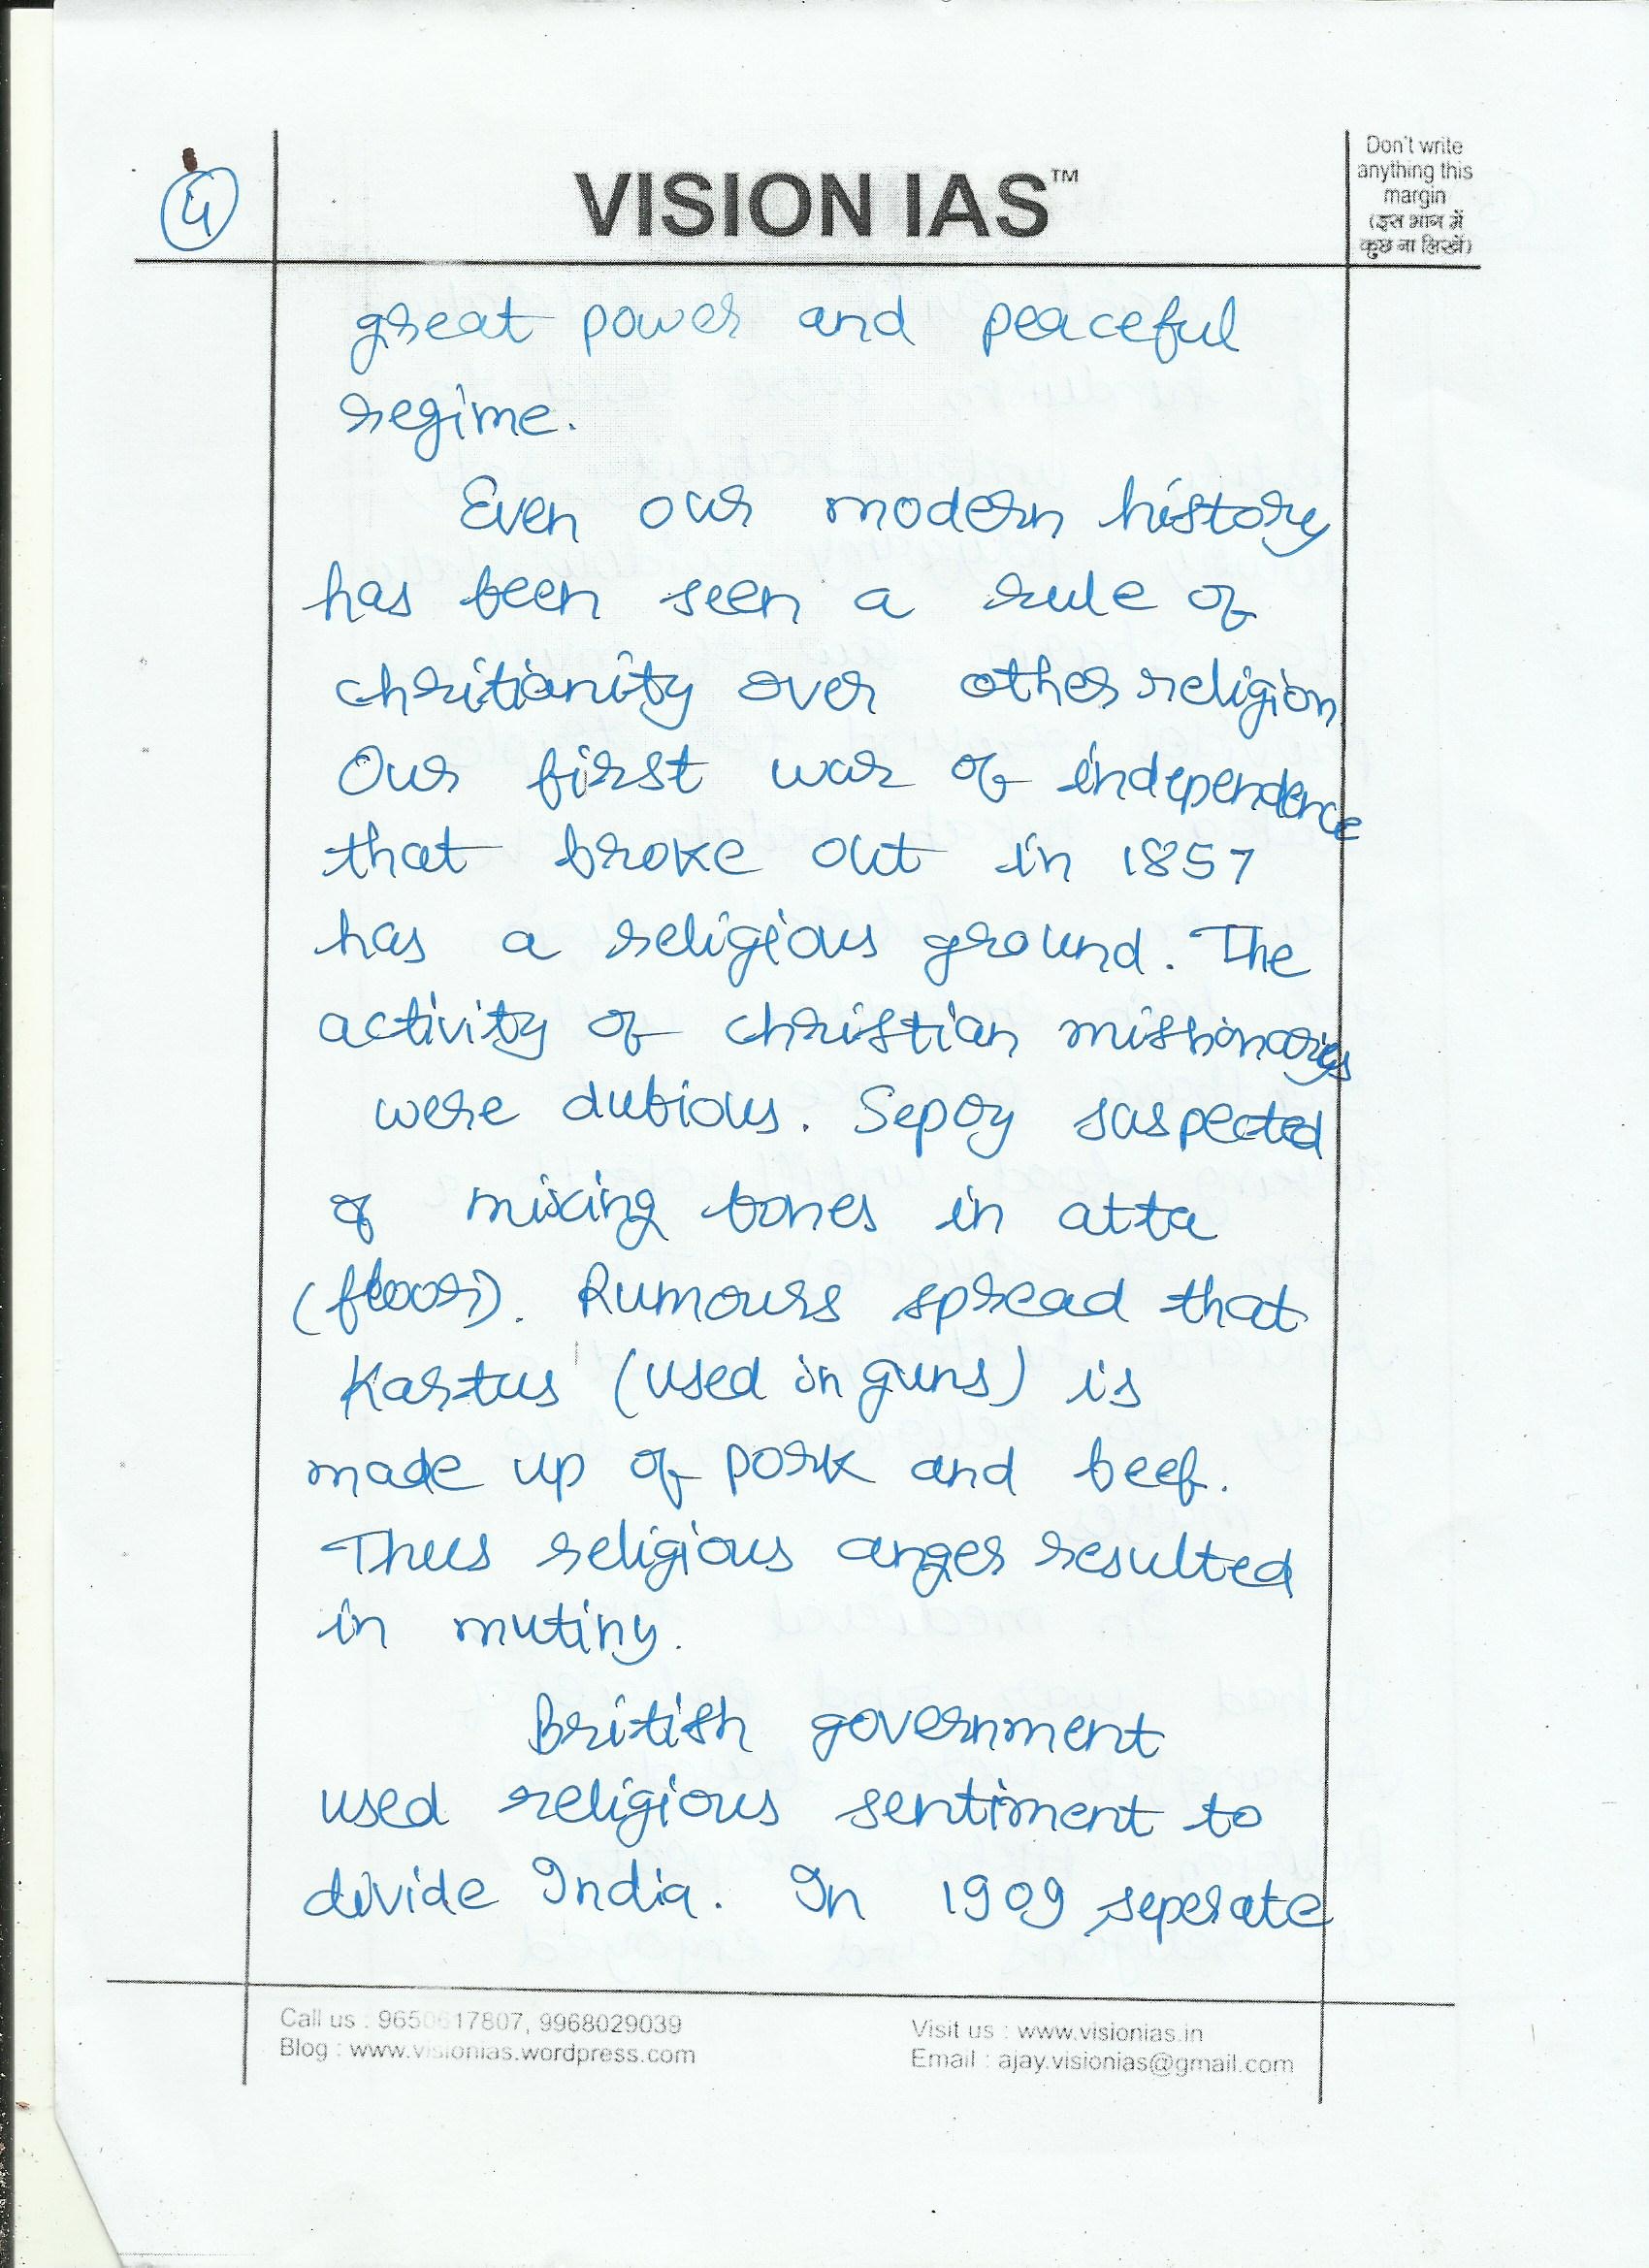 4
VISION IAS™
Don't write
anything this
margin
(इस भाग में
कुछ ना लिखें)
great power and peaceful
regime.
Even our modern history
has been seen a rule of
chritianity over other religion
Our first war of independence
that broke out in 1857
has a religious ground. The
activity of christian missionaries
were dubious. Sepoy suspected
of mixing bones in atta
(floor). Rumours spread that
Kartus (used in guns) is
made up of pork and beef.
Thus religious anger resulted
in mutiny.
British government
used religious sentiment to
divide India. In 1909 seperate
Call us : 9650617807, 9968029039
Blog : www.visionias.wordpress.com
Visit us : www.visionias.in
Email : ajay.visionias@gmail.com